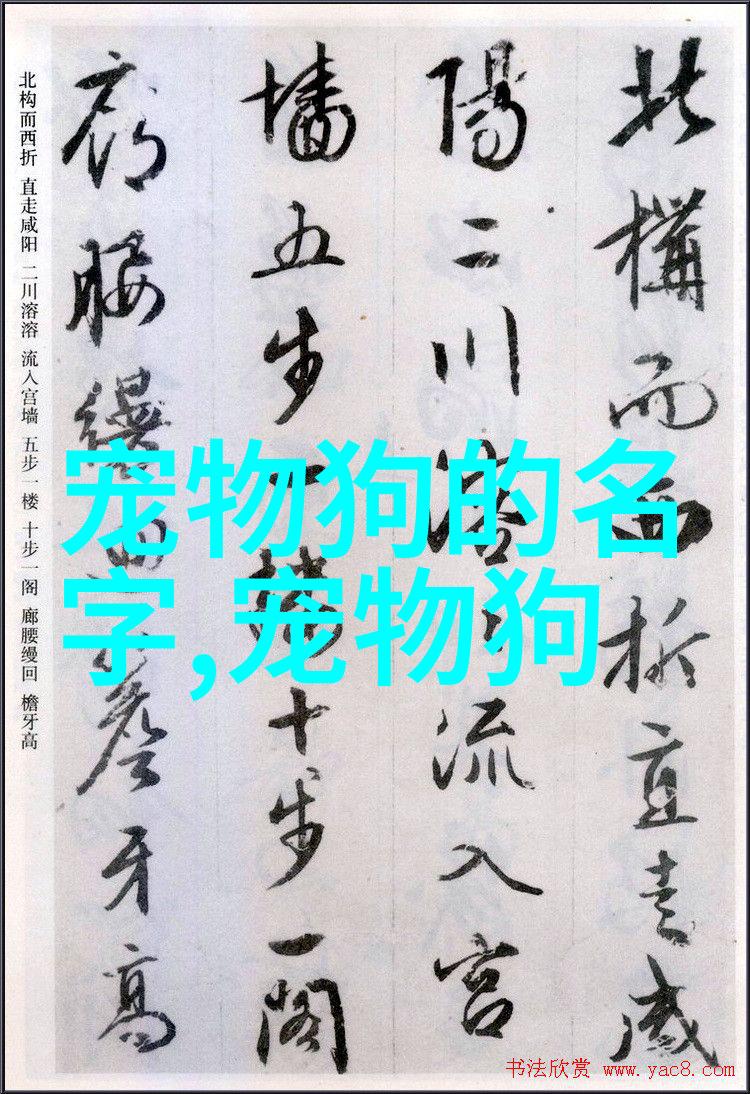 宠物狗的名
字,宠物狗
北構而西折直走咸
陽二川溶〻流入宫
墙五步一楼十步一阁
廊腰縵回簷牙高
北构而西折 直走咸阳 二川溶溶 流入宫墙 五步一楼 十步一阁 廊腰缦回 檐牙高
书法欣赏 www.yac8.com